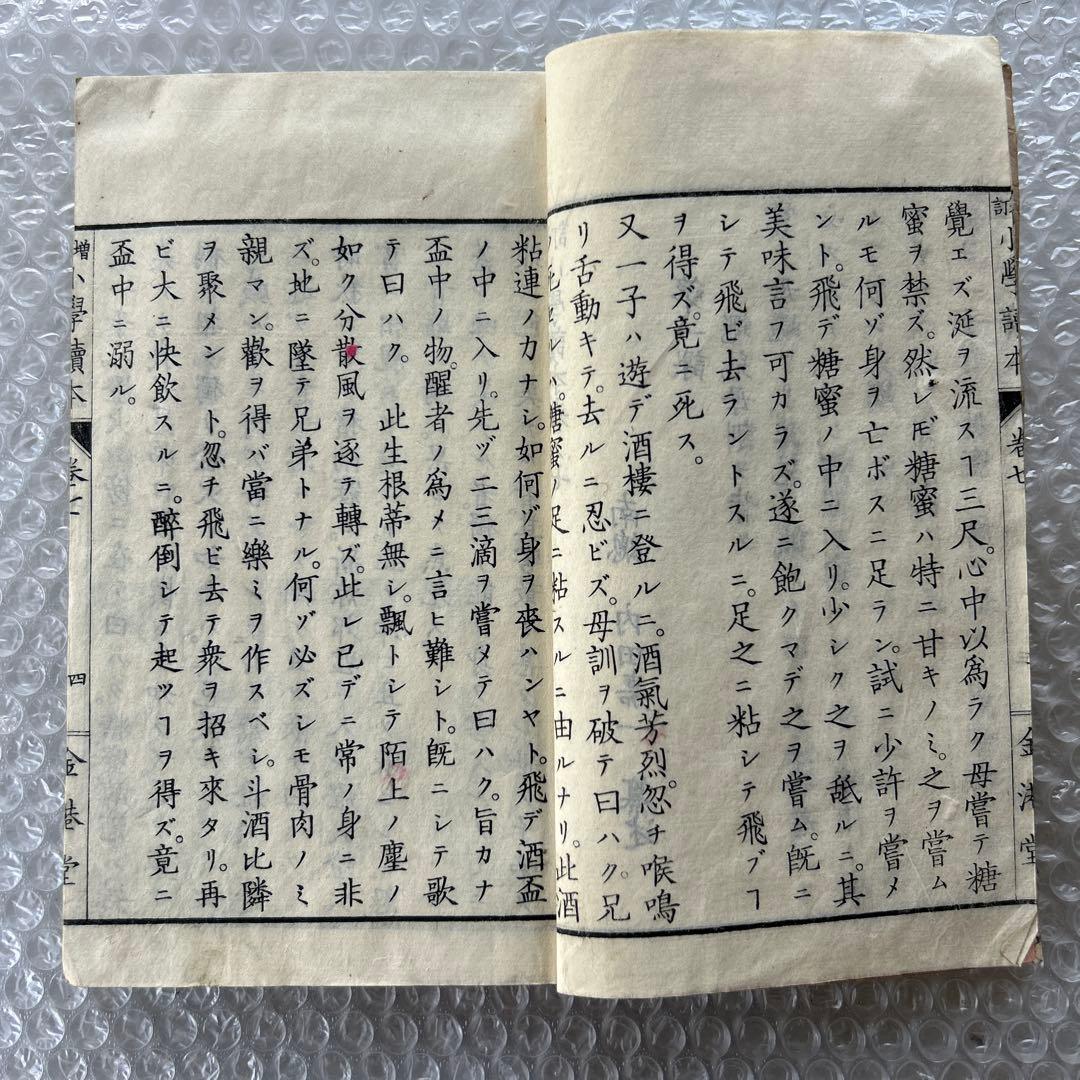 訂小學讀本 卷七 金港堂
覺エズ涎ヲ流スヿ三尺。心中以爲ラク母嘗テ糖
蜜ヲ禁ズ。然レ𪜈糖蜜ハ特ニ甘キノミ。之ヲ嘗ム
ルモ何ゾ身ヲ亡ボスニ足ラン。試ニ少許ヲ嘗メ
ント。飛デ糖蜜ノ中ニ入リ。少シク之ヲ舐ルニ。其
美味言フ可カラズ。遂ニ飽クマデ之ヲ嘗ム。既ニ
シテ飛ビ去ラントスルニ。足之ニ粘シテ飛ブヿ
ヲ得ズ。竟ニ死ス。
又一子ハ遊デ酒樓ニ登ルニ。酒氣芳烈。忽チ喉鳴
リ舌動キテ。去ルニ忍ビズ。母訓ヲ破テ曰ハク。兄
ノ死セルハ。糖蜜ノ足ニ粘スルニ由ルナリ。此酒
粘連ノカナシ。如何ゾ身ヲ喪ハンヤト。飛デ酒盃
ノ中ニ入リ。先ヅ二三滴ヲ嘗メテ曰ハク。旨カナ
盃中ノ物。醒者ノ爲メニ言ヒ難シト。既ニシテ歌
テ曰ハク。 此生根蒂無シ。飄トシテ陌上ノ塵ノ
如ク分散風ヲ逐テ轉ズ。此レ已デニ常ノ身ニ非
ズ。地ニ墜テ兄弟トナル。何ゾ必ズシモ骨肉ノミ
親マン。歡ヲ得バ當ニ樂ミヲ作スベシ。斗酒比隣
ヲ聚メント。忽チ飛ビ去テ衆ヲ招キ來タリ。再
ビ大ニ快飲スルニ。醉倒シテ起ツヿヲ得ズ。竟ニ
盃中ニ溺ル。
增小學讀本 卷七 四 金港堂